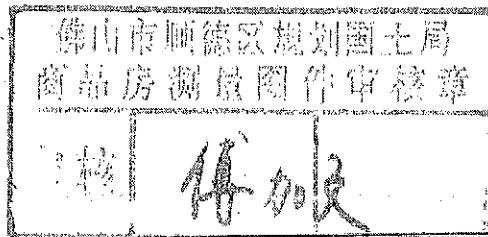 佛山市顺德区规划国土局
商品房测量图件审核章
审核 傅加文